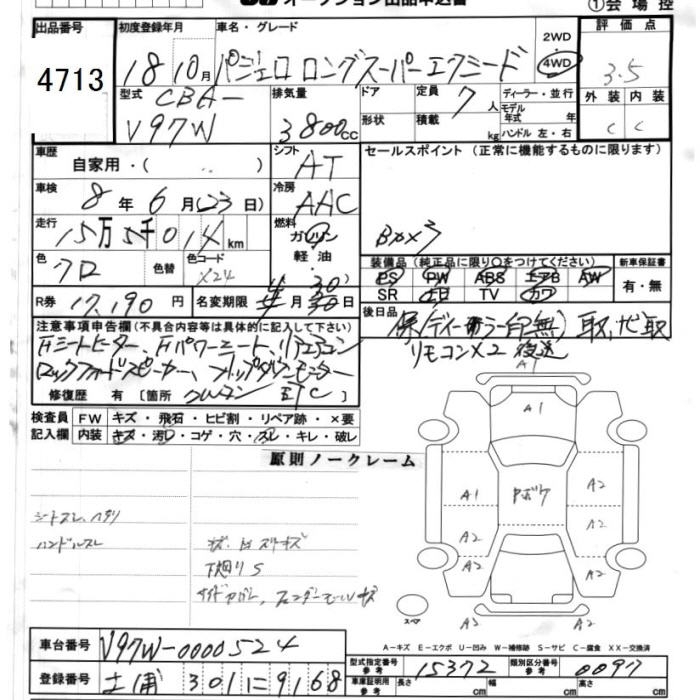 オークション出品申込書
①会場控
出品番号
4713
初度登録年月
18 10月
車名・グレード
パジェロ ロングスーパーエクシード
2WD
4WD
評価点
3.5
外装 内装
C C
型式
CBA-
V97W
排気量
3800cc
ドア
形状
定員
7人
積載
kg
ディーラー・並行
モデル
年式 年
ハンドル 左・右
車歴
自家用・( )
シフト
AT
セールスポイント (正常に機能するものに限ります)
車検
8年 6月(23日)
冷房
AAC
走行
15万5千014km
燃料
ガソリン
軽油
色
クロ
色替
色コード
X24
装備品 (純正品に限り○をつけてください)
PS PW ABS エアB AW
SR 土日 TV カワ
新車保証書
有・無
R券
17,190円
名変期限
月 日
後日品
リモコンX2 後送
注意事項申告欄 (不具合内容等は具体的に記入して下さい)
Fシートヒーター、Fパワーシート、リアエアコン
ロックフォードスピーカー、フリップダウンモニター
修復歴 有 [箇所
ETC
検査員
記入欄
FW
キズ・飛石・ヒビ割・リペア跡・×要
内装
キズ・汚れ・コゲ・穴・スレ・キレ・破レ
原則ノークレーム
シートスレ、ヘタリ
ハンドルスレ
下廻りS
A1
A1
A1
Pボケ
A2
A2
A2
A2
A2
A2
スペア
A=キズ E=エクボ U=凹み W=補修跡 S=サビ C=腐食 XX=交換済
車台番号
V97W-0000524
登録番号
土浦 301 ニ 9168
型式指定番号
参考
15372
類別区分番号
参考
0097
車庫証明用
参考
長さ
cm
幅
cm
高さ
cm